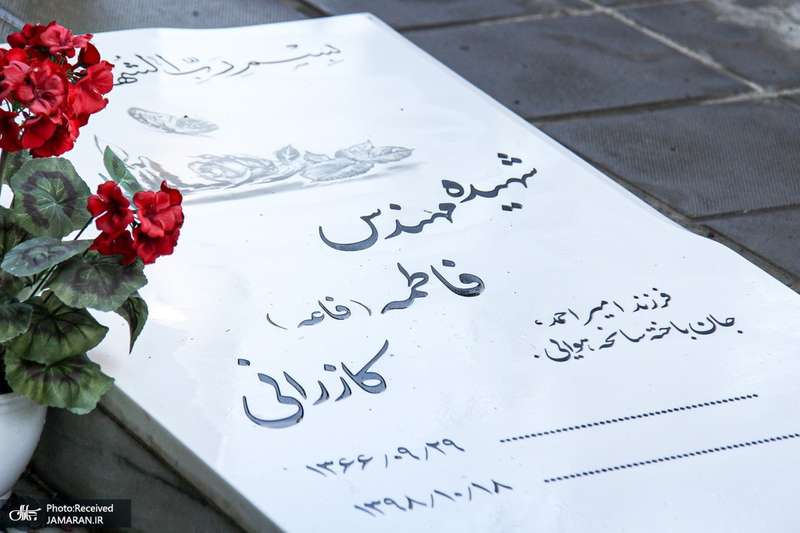 بسم رب الشه
شهیده مهندس
فاطمه (فائمه)
کازرانی
فرزند امیر احمد،
جان باخته سانحه هوایی.
۱۳۶۶/۰۹/۲۹
۱۳۹۸/۱۰/۱۸
Photo:Received
JAMARAN.IR